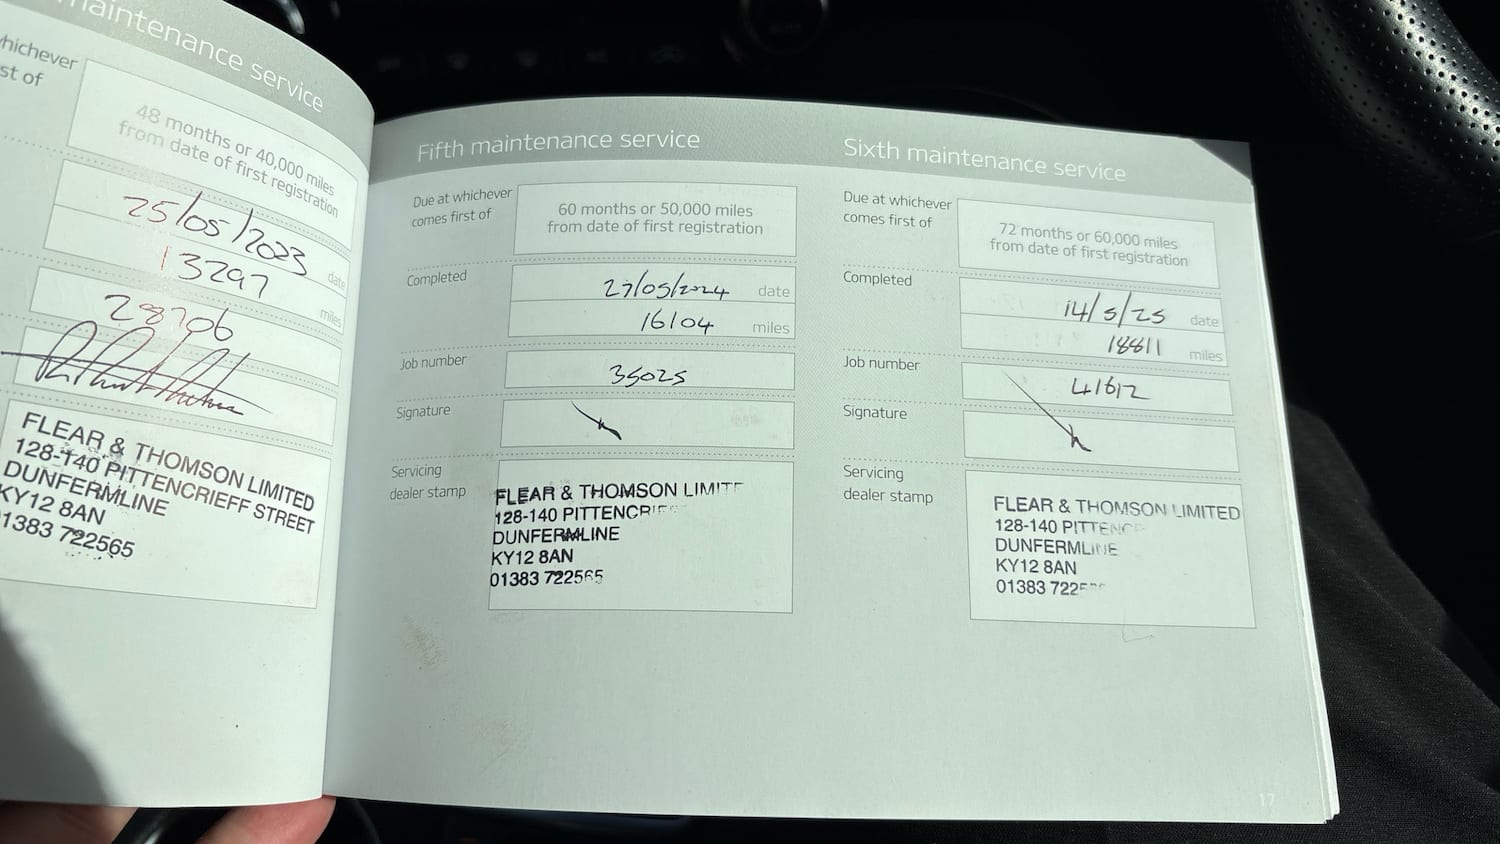 maintenance service
whichever
st of
48 months or 40,000 miles
from date of first registration
25/05/2023 date
13297 miles
28706
FLEAR & THOMSON LIMITED
128-140 PITTENCRIEFF STREET
DUNFERMLINE
KY12 8AN
01383 722565
Fifth maintenance service
Due at whichever
comes first of
60 months or 50,000 miles
from date of first registration
Completed
27/05/2024 date
16104 miles
Job number
35025
Signature
Servicing
dealer stamp
FLEAR & THOMSON LIMITE
128-140 PITTENCRIEF
DUNFERMLINE
KY12 8AN
01383 722565
Sixth maintenance service
Due at whichever
comes first of
72 months or 60,000 miles
from date of first registration
Completed
14/5/25 date
18811 miles
Job number
41612
Signature
Servicing
dealer stamp
FLEAR & THOMSON LIMITED
128-140 PITTENC
DUNFERMLINE
KY12 8AN
01383 722
17